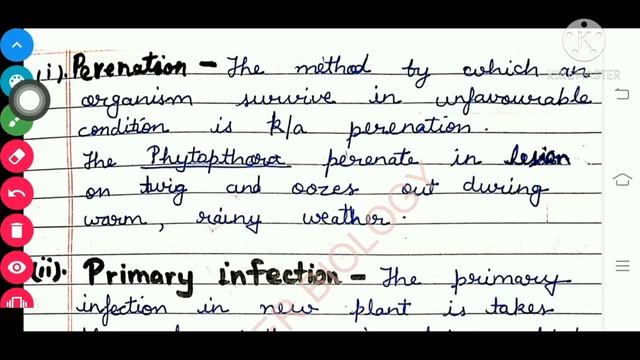 (i). Perenation - The method by which an
organism survive in unfavourable
condition is k/a perenation.
The Phytopthora perenate in lesion
on twig and oozes out during
warm, rainy weather.
(ii). Primary infection - The primary
infection in new plant is takes
ER BIOLOGY